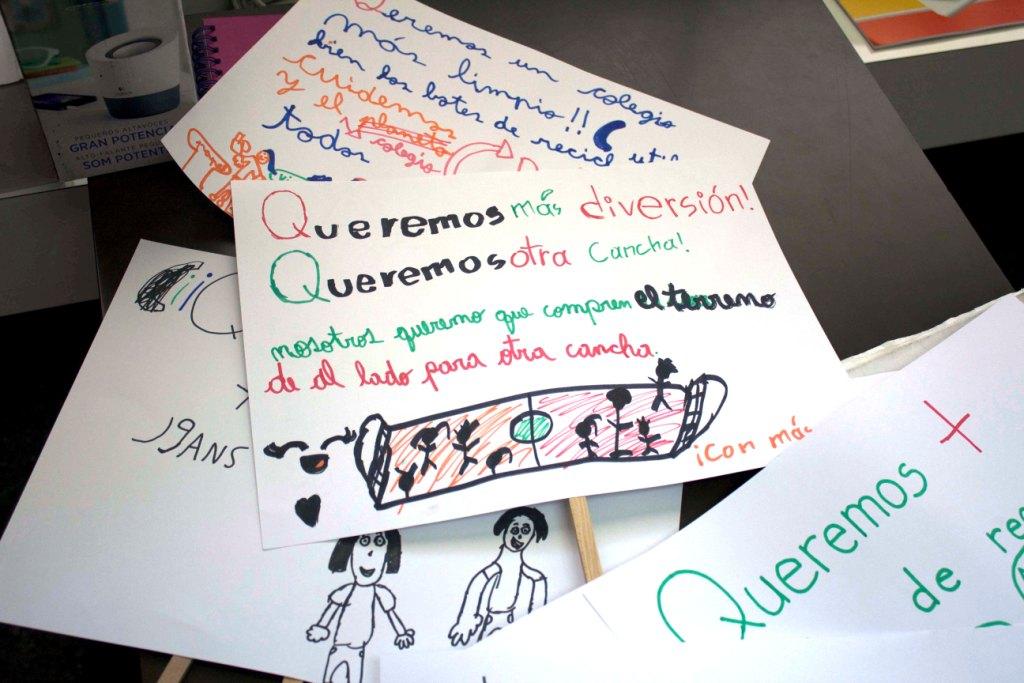 PEQUEÑOS ALTAVOCES
GRAN POTENCI
SOM POTENT
Queremos un colegio
más limpio!!
bien los botes de recicl
Cuidemos
y el planeta
colegio
todos
Queremos más diversión!
Queremos otra cancha!
nosotros queremo que compren el terreno
de al lado para otra cancha.
¡Con más
Queremos +
de re